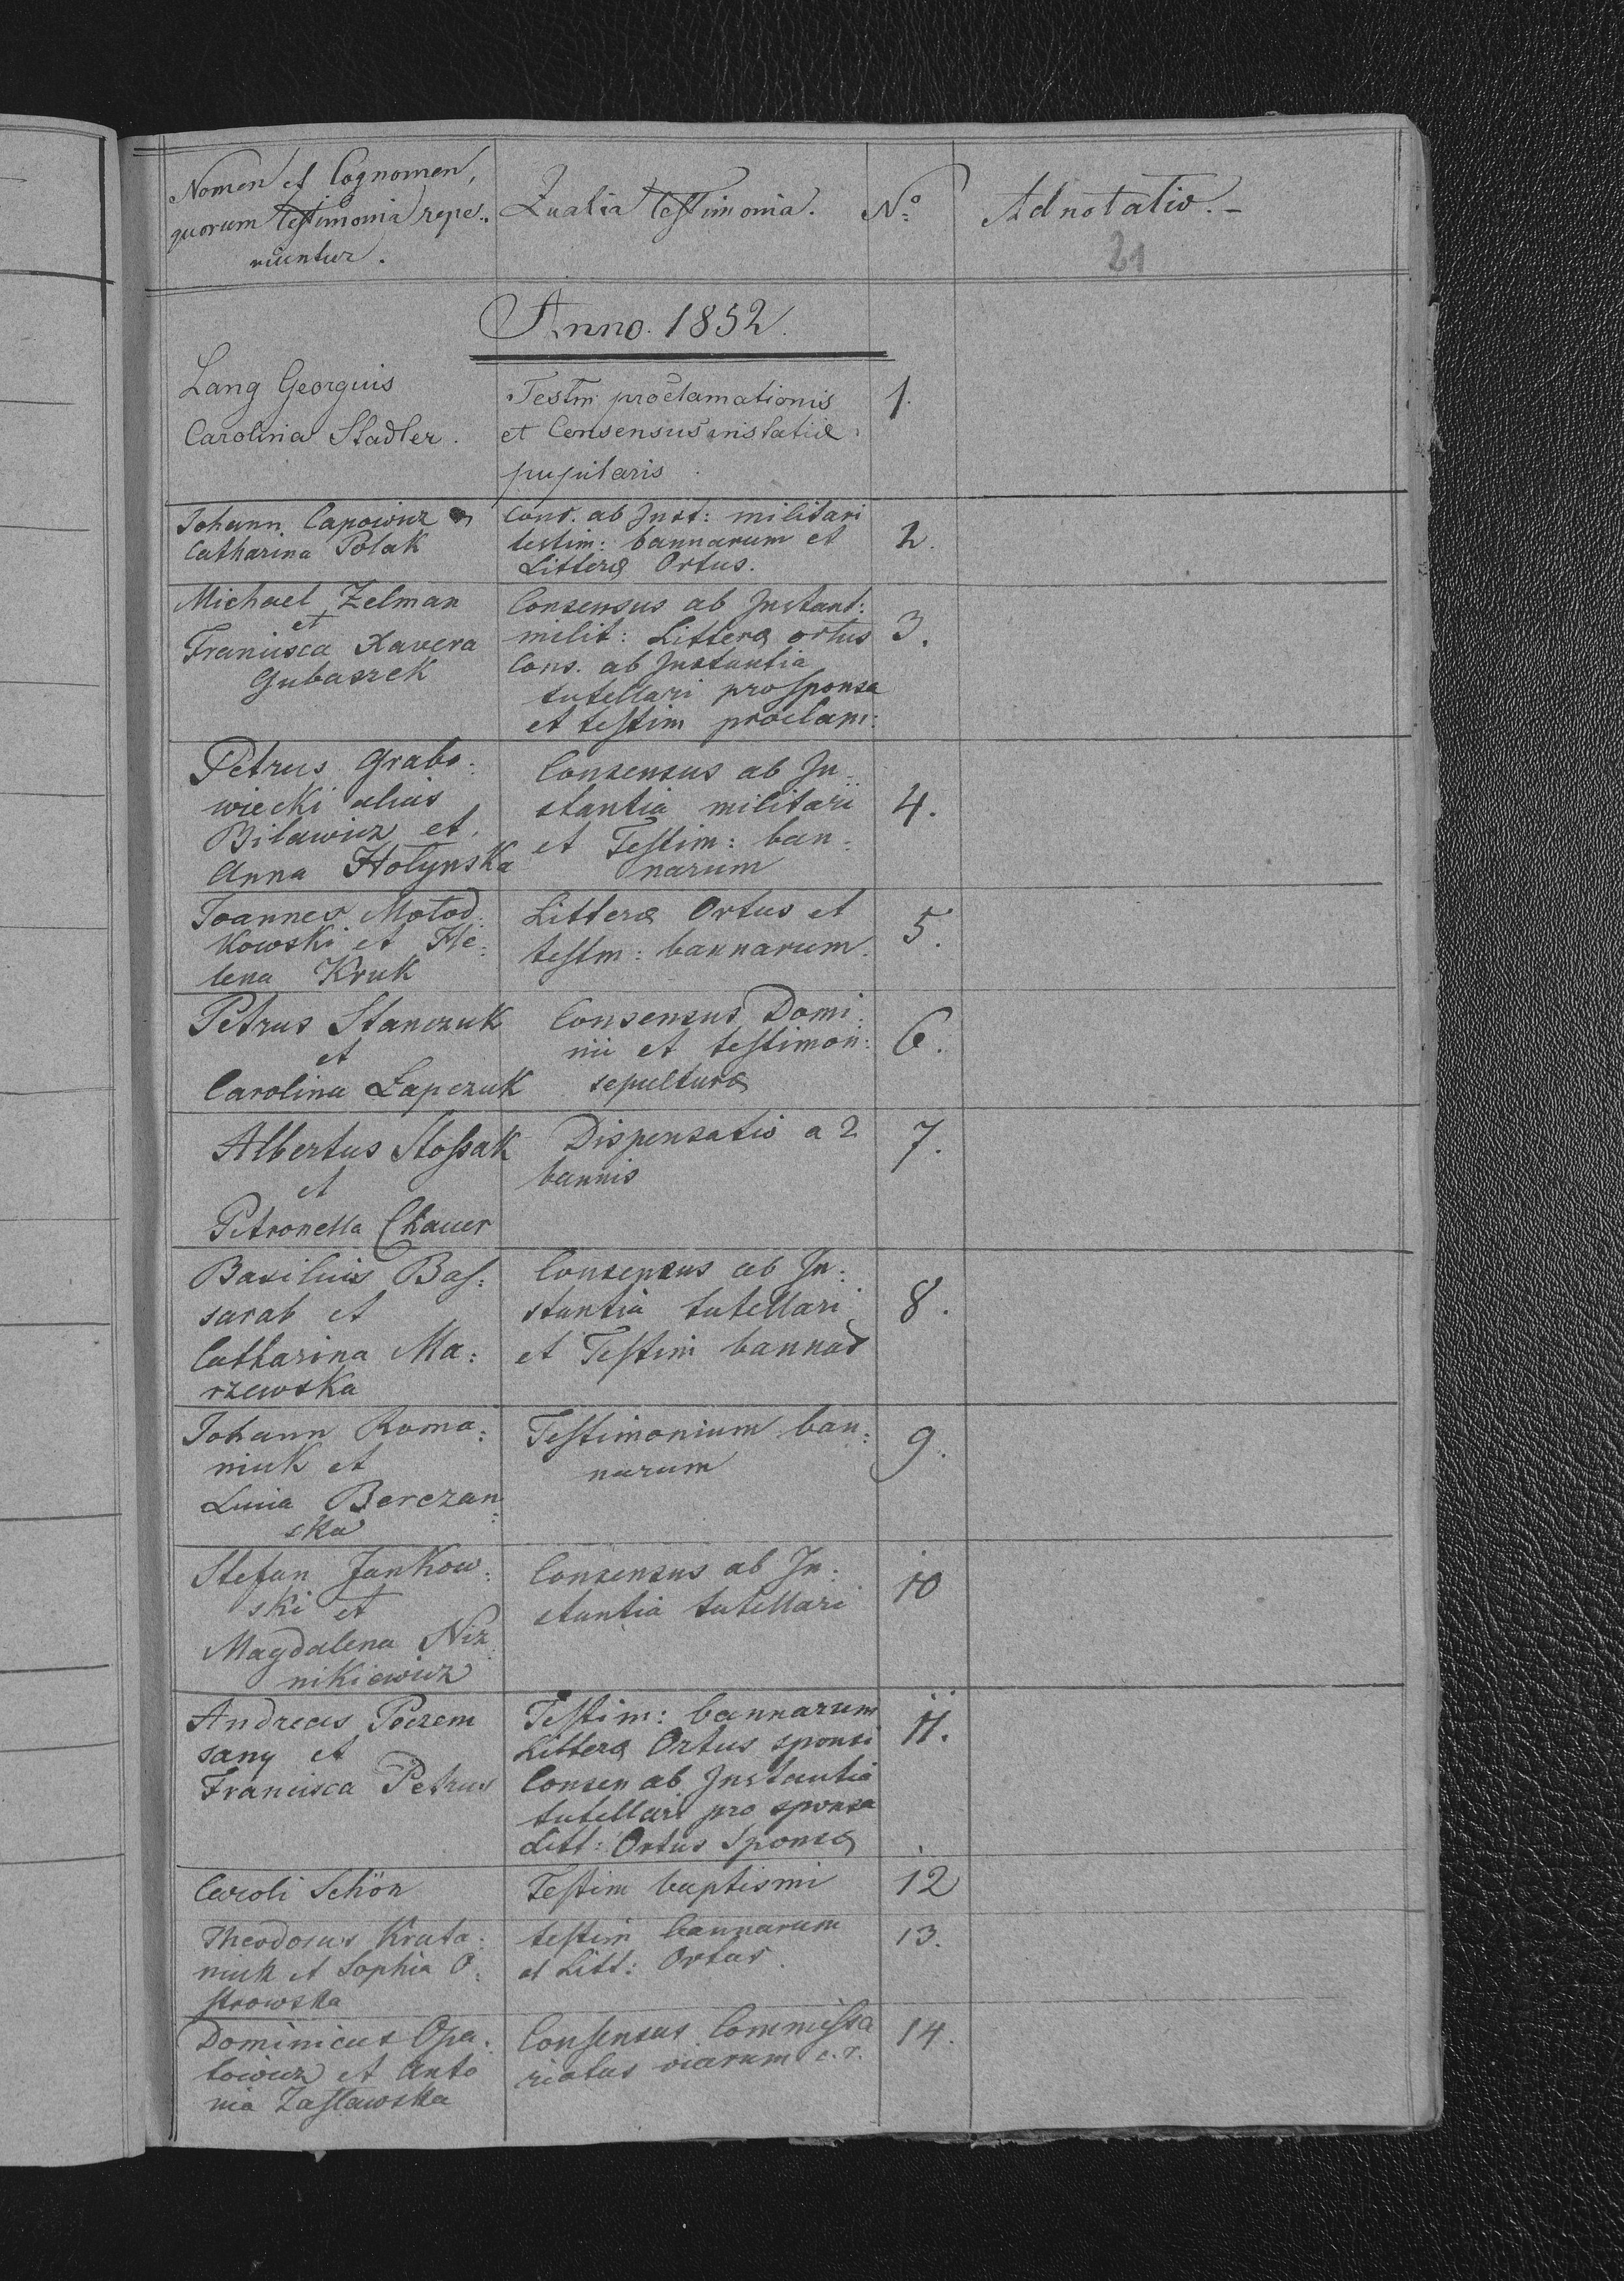 Nomen et Cognomen,
quorum testimonia repe:
riuntur.
Qualia testimonia.
No
Adnotatio. -
21
Anno. 1852.
Lang Georguis
Carolina Stadler.
Testm proclamationis
et Consensus instatiæ
pupilaris
1.
Johann Capowicz
Catharina Polak
Cons. ab Inst: militari
testim: bannarum et
Litteræ Ortus.
2.
Michael Zelman
et
Francisca Xavera
Gubaszek
Consensus ab Instant:
milit: Litteræ ortus
Cons. ab Instantia
tutellari pro sponsa
et testim proclam:
3.
Petrus Grabo:
wiecki alias
Bilawicz et
Anna Hołynska
Consensus ab In:
stantia militari
et Testim: ban:
narum
4.
Joannes Motod:
kowski et He:
lena Kruk
Litteræ Ortus et
testm: bannarum.
5.
Petrus Stanczuk
et
Carolina Łapczuk
Consensus Domi:
nii et testimon:
sepulturæ
6.
Albertus Stossak
et
Petronella Chauer
Dispensatio a 2
bannis
7.
Basilius Bas:
sarab et
Catharina Ma:
rzewska
Consensus ab In:
stantia tutellari
et Testim bannar
8.
Johann Roma:
niuk et
Lucia Berezan:
ska
Testimonium ban:
narum
9.
Stefan Jankow:
ski et
Magdalena Niz:
nikiewicz
Consensus ab In:
stantia tutellari
10
Andreas Poezem
sany et
Francisca Petrus
Testim: bannarum
Litteræ Ortus sponsi
Consen ab Instantia
tutellari pro sponsa
Litt: Ortus Sponsæ
11.
Caroli Schön
Testim baptismi
12
Theodosius Kruta:
niuk et Sophia O:
strowska
testim bannarum
et Litt: Ortus.
13.
Dominicus Opa:
towicz et Anto
nia Zasławska
Consensus Commissa
riatus viarum c. r.
14.